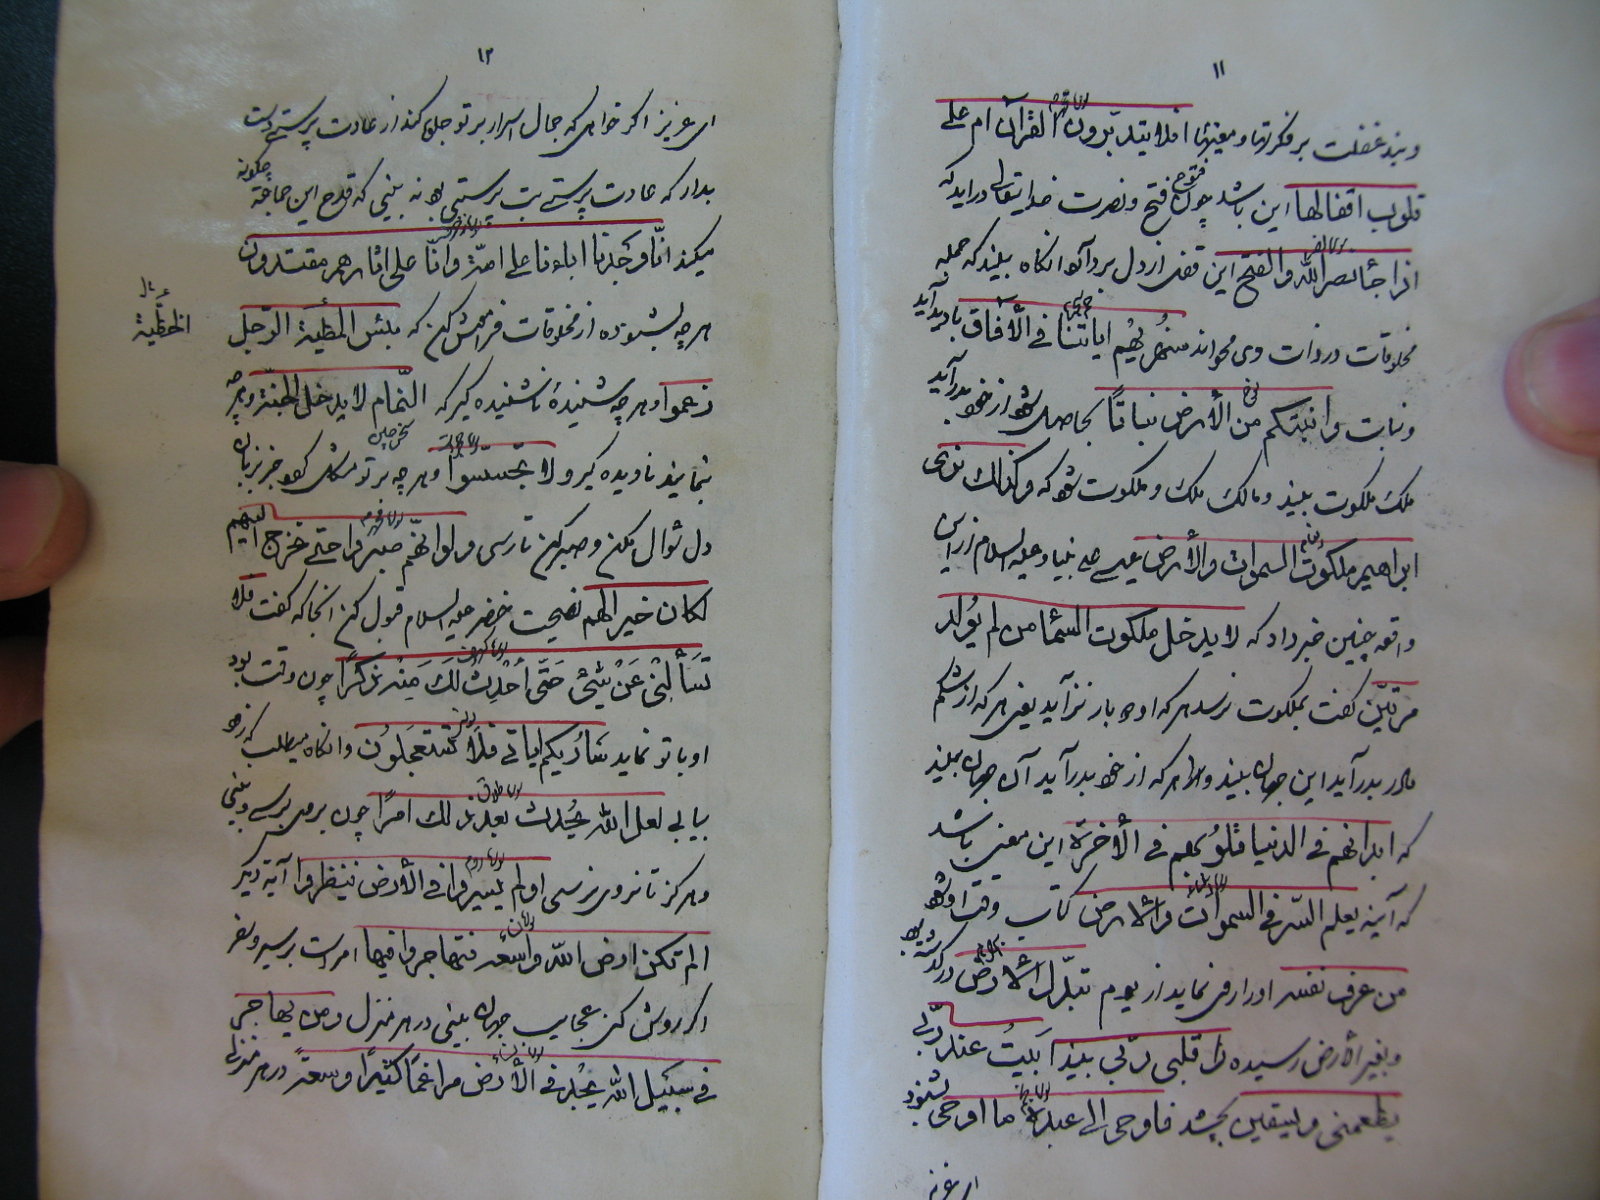 ۱۱
و بند غفلت بر فکرتها و معنیها افلا یتدبّرون القرآن ام علی
قلوب اقفالها این باشد چون فتوح فتح و نصرت خدایتعالی درآید که
اذا جأ نصر الله والفتح این قفل از دل بردارد آنگاه بیند که جمله
مخلوقات در ذات وی میخواند سنریهم ایاتنا فی الآفاق بادید آید
ونبات و انبتکم من الأرض نباتاً بحاصل شود از خود بدر آید
ملک ملکوت بیند و مالک ملک و ملکوت شود که و کذلک نری
ابراهیم ملکوت السموات والأرض عیسی علی نبینا و علیه السلام از این
واقعه چنین خبر داد که لا یدخل ملکوت السمأ من لم یولد
مرتین گفت بملکوت نرسد هرکه او دو بار نزآید یعنی هر که از شکم
مادر بدر آید این جهان بیند و هر که از خود بدر آید آن جهان بیند
که ابدانهم فی الدنیا و قلوبهم فی الأخرة این معنی باشد
که آینه یعلم السّر فی السموات والارض کتاب وقت او شود
من عرف نفسه او را رقی نماید از یوم تبدّل الارض درگذشته
و بغیر الأرض رسیده رأ قلبی ربّی بیند ابیت عند ربّی
یطعمنی و یسقین بچشد فاوحی الی عبده ما اوحی بشنود
ای عزیز
۱۲
ای عزیز اگر خواهی که جمال اسرار بر تو جلوه کند از عادت پرستی دست
بدار که عادت پرستی بت پرستی بود نه بینی که قدح این جماعة چگونه
میکند انّا وجدنا اباءنا علی امّة و انّا علی اثارهم مقتدون
هر چه بشنوده از مخلوقات فرامش کن که بئس المطیّة الرّجل
الخطیّة
زعموا و هر چه شنیدهٔ ناشنیده گیر که النّمام لا یدخل الجنّة و هر چه
بنمایند نادیده گیر و لا تجسّسوا و هر چه بر تو مشکل گردد جز بزبان
دل سؤال مکن و صبر کن تا رسی و لو انّهم صبروا حتّی تخرج الیهم
لکان خیرا لهم نصیحت خضر علیه السلام قبول کن آنجا که گفت فلا
تسألنی عن شیٔ حتی احدث لک منه ذکرا چون وقت بود
او با تو نماید سأریکم ایاتی فلا تستعجلون وانگاه میطلب
بیابی لعل الله یحدث بعد ذلک امراً چون بروی برسی و بینی
و هرگز تا نروی نرسی اولم یسیروا فی الأرض فینظروا آیه دیگر
الم تکن ارض الله واسعة فتهاجروا فیها امر است بسیر و سفر
اگر روش کنی عجایب جهان بینی در هر منزل و من یهاجر
فی سبیل الله یجد فی الأرض مراغماً کثیراً وسعة در هر منزلی